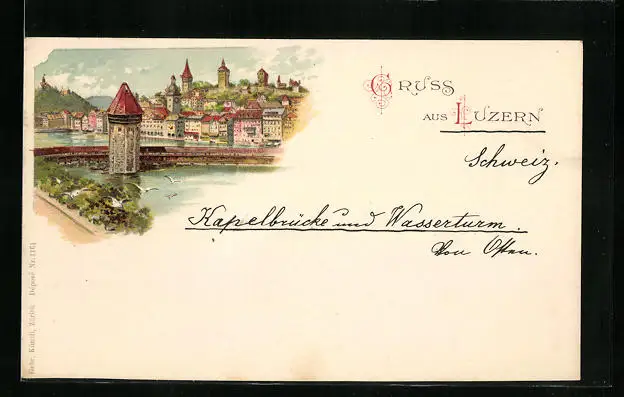 GRUSS
AUS LUZERN
Schweiz.
Kapelbrücke und Wasserturm.
Von Osten.
Gebr. Künzli, Zürich Déposé Nr. 1161